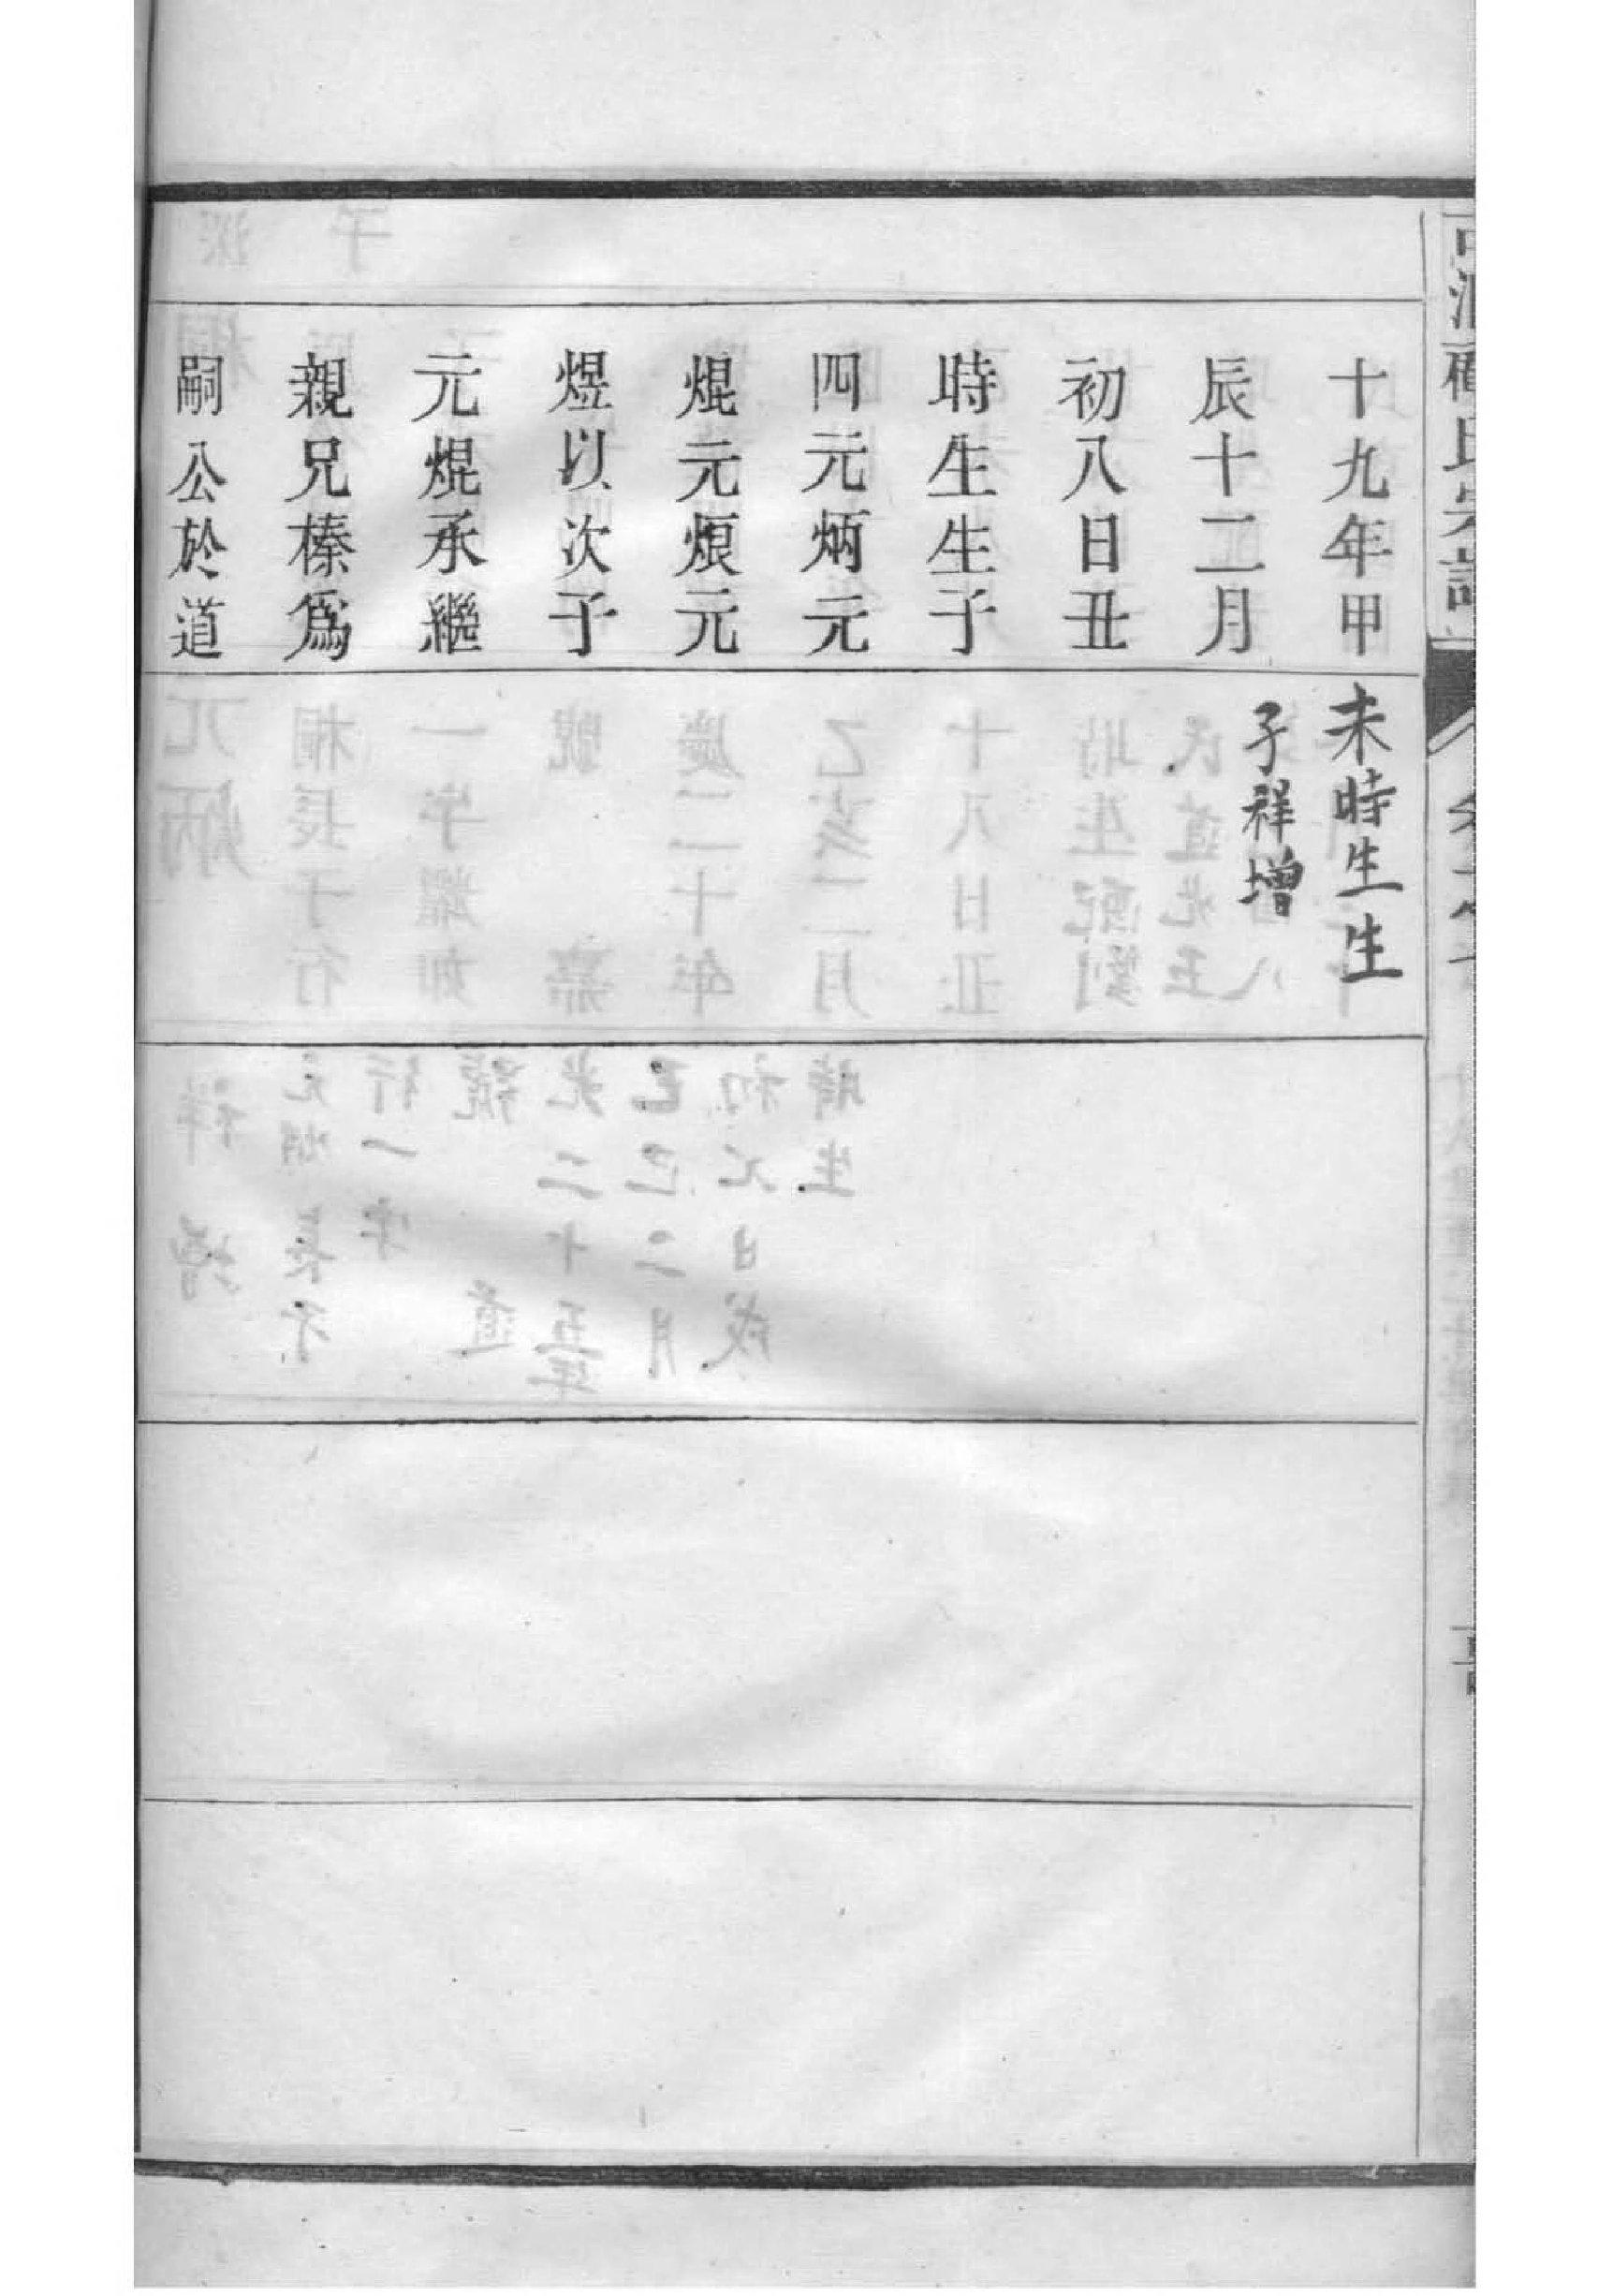 十九年甲
辰十二月
初八日丑
時生生子
四元炳元
焜元烺元
煜以次子
元焜承繼
親兄榛爲
嗣公於道
未時生生
子祥增